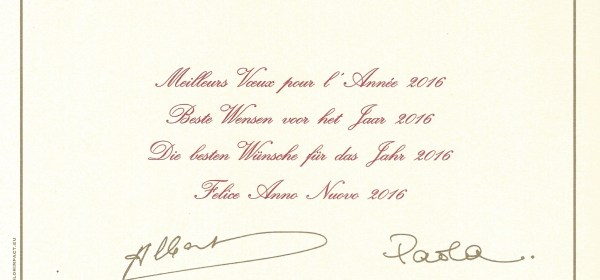 Meilleurs Vœux pour l'Année 2016
Beste Wensen voor het Jaar 2016
Die besten Wünsche für das Jahr 2016
Felice Anno Nuovo 2016
Albert
Paola.